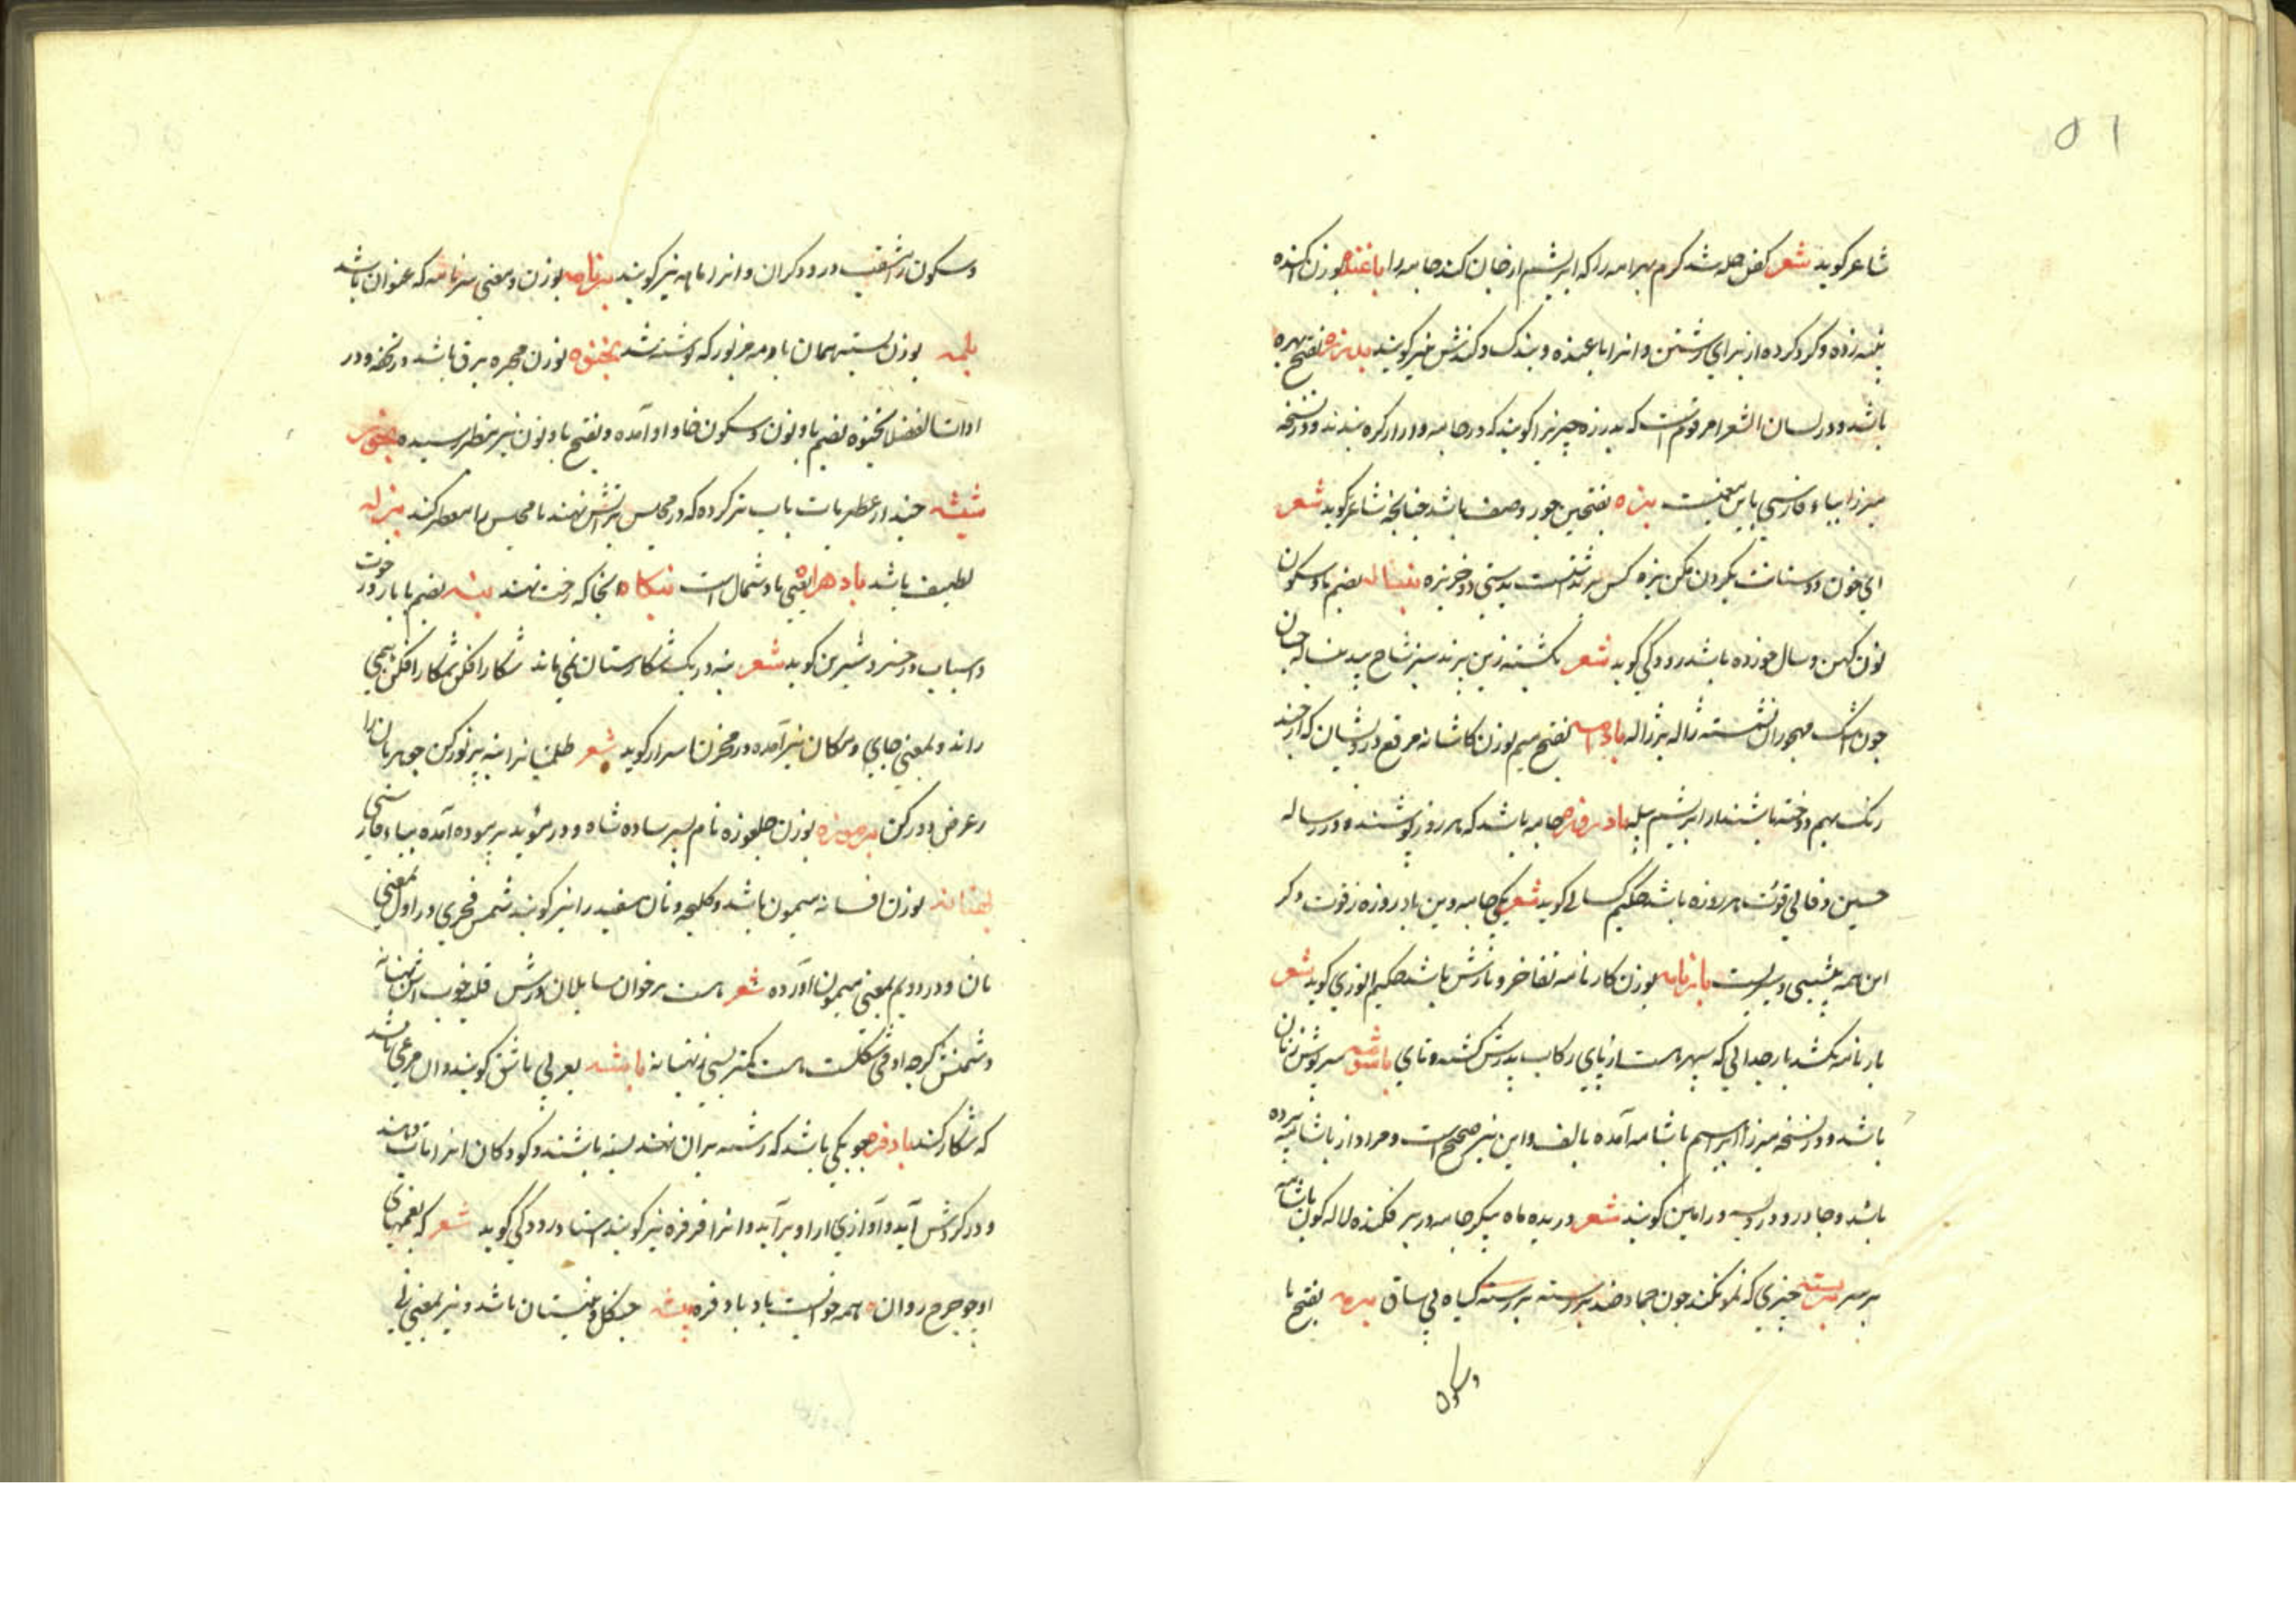 ۵۱
شاعر گوید شعر کفن حله شد کرم بهرامه را که ابریشم از جان کند جامه را باغنده بوزن اکنده
پنبه زده و گرد کرده از برای رشتن و انرا باغنده و بندک و کندش نیز گویند بدرزه بفتح بهره
باشد و در لسان الشعرا مرقوم است که بدرزه چیزیرا گویند که در جامه و ازار کره بندند و در نسخه
میرزا ببا و فارسی باین معنیست بزه بفتحین جور و حیف باشد چنانچه شاعر گوید شعر
ای خون دوستانت بگردن مکن بزه کس بر نداشتست بدستی دو خربزه بنساله بضم با و سکون
نون کهن و سال خورده باشد رودکی گوید شعر
چون اشک مهجوران نشسته ژاله بر ژاله بادامه بفتح میم بوزن کاشانه مرقع درویشان که از چند
رنگ بهم دوخته باشند از ابریشم پیله بادروزه جامه باشد که هر روز پوشند و در رساله
حسین وفائی قوت هر روزه باشد حکیم سنائی گوید شعر یکی جامه وین بادروزه ز قوت دگر
این همه بیشیی و بر لیست بارنامه بوزن کارنامه تفاخر و نازش باشد حکیم انوری گوید شعر
بارنامه نکشد بار خدایی که سپهر هست از پای رکاب پدرش کشته و نای باشومه سرپوش زنان
باشد و در نسخه میرزا ابراهیم باشامه آمده بالف و این نیز صحیح است و مراد از باشامه پرده
باشد و چادر و در ویسه و رامین گویند شعر دریده ماه پیکر جامه در بر فکنده لاله گون باشامه
بر سر بربسته چیزی که نمو نکند چون جماد ضد بررسته بررسته گیاه بی ساق برمه بفتح با
و سکون
و سکون را مثقب درودگران و انرا ماهه نیز گویند برنامه بوزن و معنی سرنامه که عنوان باشد
بلمه بوزن همان بادمه مزبور که نوشته شد بخنوه بوزن مجره برق باشد در تحفه و در
ادات الفضلا بخنوه بضم با و نون و سکون خا و واو آمده و بفتح با و نون نیز بنظر رسیده بخور
شیشه چند از عطریات باب تر کرده که در مجلس بر آتش نهند تا مجلس را معطر کند بزله
لطیف باشد بادهراه یعنی باد شمال است بنکاه جایی که رخت نهند بنه بضم با بار و رخوت
و اسباب در خسرو شیرین گوید شعر بنه در یک شکارستان نمی ماند شکار افکن شکار افکن همی
راند و بمعنی جای و مکان نیز آمده در مخزن اسرار گوید شعر ظلمتیانرا بنه بی نور کن جوهریان را
ز عرض دور کن برموزه بوزن چلغوزه نام پسر ساده شاه و در مؤید پرموده آمده ببا و فارسی
بهنانه بوزن افسانه میمون باشد و کلیچه و نان سفید را نیز گویند شمس فخری در اول بمعنی
نان و در دویم بمعنی میمون آورده شعر هست بر خوان سایلان درش قلیه خوب این بهنانه
دشمنش گرچه او فی شکلست هست کمتر بسی ز بهنانه باشه بعربی باشق گویند و ان مرغی باشد
که شکار کند بادفره چوبکی باشد که رشته بران نهند بسته باشند و کودکان انرا تاب دهند
و در گردش آید و آوازی از او برآید و انرا فرفره نیز گویند استاد رودکی گوید شعر که بغمهای
او چو چرخ روان همه خوانست باد بادفره بیشه جنگل و نیستان باشد و نیز بمعنی نی